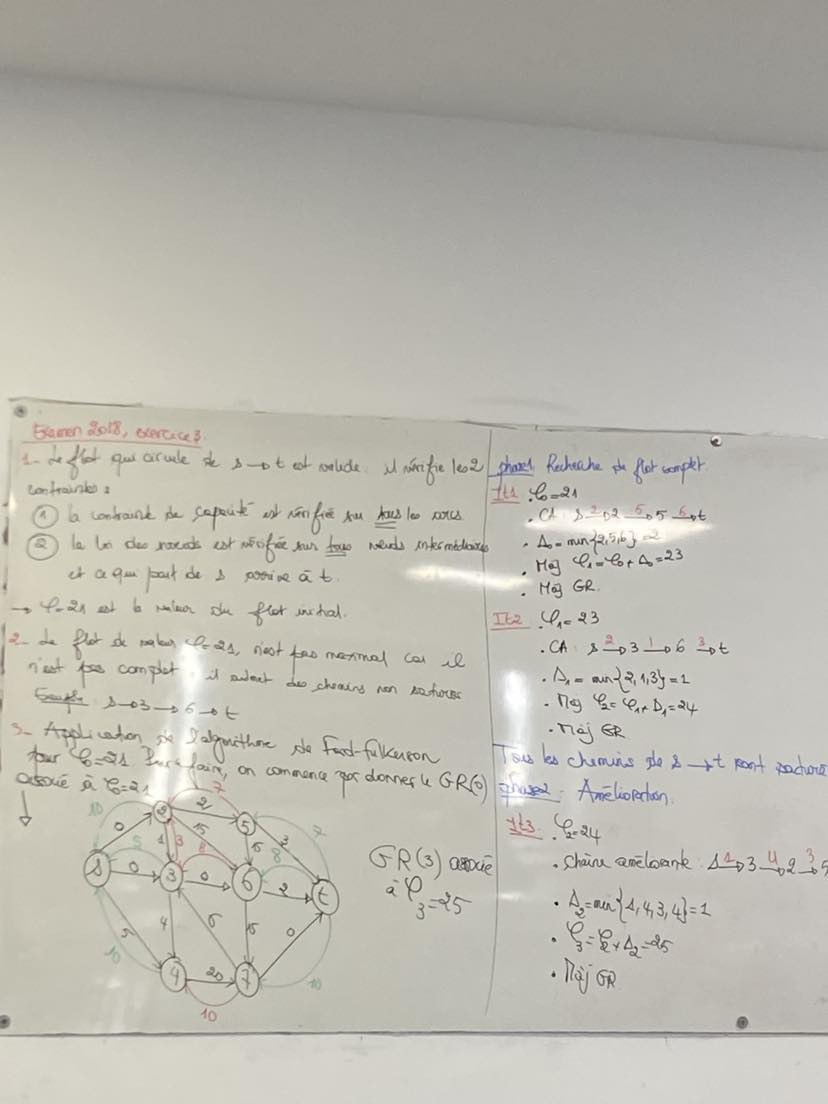 Examen 2018, exercice 3.
1- Le flot qui circule de s → t est valide : il vérifie les 2
contraintes :
① la contrainte de capacité est vérifiée sur tous les arcs
② la loi des nœuds est vérifiée sur tous nœuds intermédiaires
et ce qui part de s arrive à t.
→ φ=21 est la valeur du flot initial.
2- Le flot de valeur φ=21, n'est pas maximal car il
n'est pas complet : il existe des chemins non saturés
Exemple : s → 3 → 6 → t
3- Application de l'algorithme de Ford-Fulkerson
pour φ0=21. Pour faire, on commence par donner le GR(0)
associé à φ0=21
10 0 2 7 2 5 7
5 1 3 15 8 5 3 8
s 0 3 0 6 2 t
5 4 6 15 0
10 4 20 7 10
10
GR(3) associé
à φ3=25
phase1 Recherche de flot complet
It1 . φ0=21
. CA : s 2→ 2 5→ 5 6→ t
. Δ0 = min{2,5,6} =2
. Màj φ1=φ0+Δ0=23
. Màj GR.
It2 . φ1=23
. CA : s 2→ 3 1→ 6 3→ t
. Δ1 = min{2,1,3}=1
. Màj φ2=φ1+Δ1=24
. Màj GR
Tous les chemins de s → t sont saturés
phase2 : Amélioration.
It3 . φ2=24
. Chaîne améliorante : s 1→ 3 4→ 2 3→ 5
. Δ2=min{1,4,3,4}=1
. φ3=φ2+Δ2=25
. Màj GR